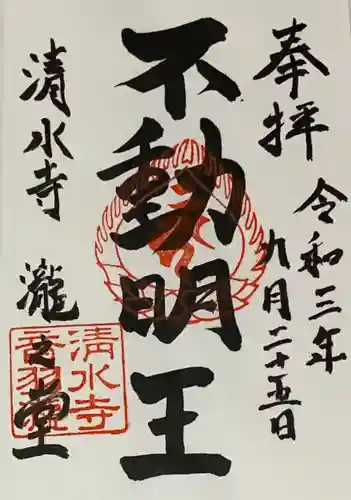 奉拝
令和三年
九月二十五日
不動明王
清水寺
瀧之堂
清水寺
音羽瀧